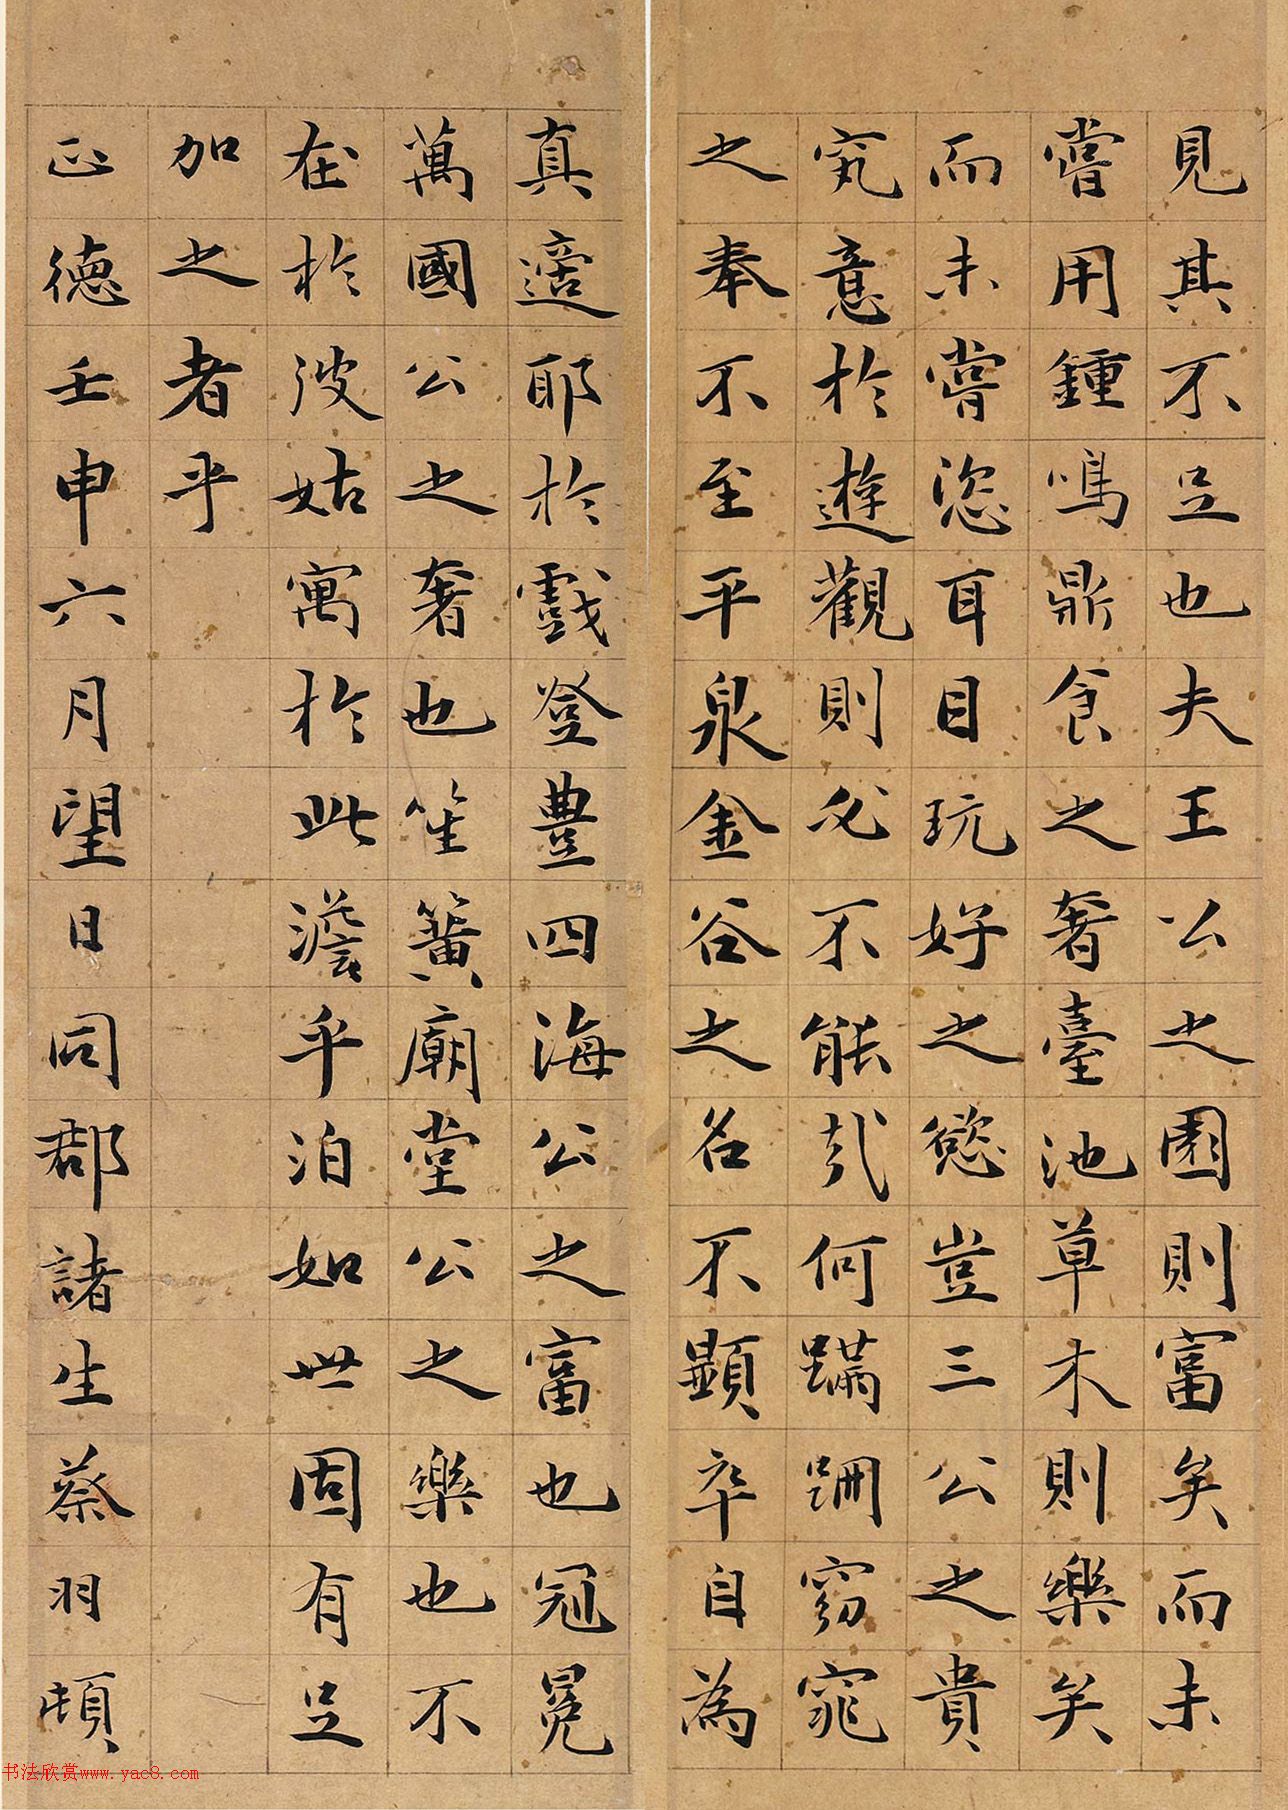 見其不足也夫王公之園則富矣而未
嘗用鍾鳴鼎食之奢臺池草木則樂矣
而未嘗恣耳目玩好之慾豈三公之貴
究意於遊觀則必不能哉何蹣跚窈窕
之奉不至平泉金谷之名不顯卒自為
真適耶於戲登豊四海公之富也冠冕
萬國公之奢也笙簧廟堂公之樂也不
在於彼姑寓於此澹乎泊如世固有足
加之者乎
正德壬申六月望日同郡諸生蔡羽頓
书法欣赏www.yac8.com